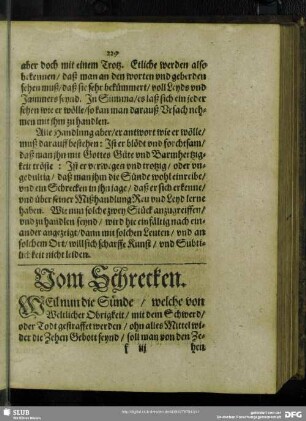 229
aber doch mit einem Trotz. Etliche werden also
bekennen / daß man an den worten vnd geberden
sehen muß / daß sie sehr bekümmert / voll Leyds vnd
Jammers seynd. In Summa / es laß sich ein jeder
sehen wie er wölle / so kan man darauß Vrsach neh-
men mit ihm zu handlen.
Alle Handlung aber / er antwort wie er wölle /
muß darauff bestehen: Ist er blöd vnd forchtsam /
daß man ihn mit Gottes Güte vnd Barmhertzig-
keit tröste: Ist er verwegen vnd trotzig / oder vn-
gedultig / daß man ihm die Sünde wohl einreibe /
vnd ein Schrecken in ihn jage / daß er sich erkenne /
vnd über seiner Mißhandlung Reu vnd Leyd lerne
haben. Wie nun solche zwey Stück anzugreiffen /
vnd zu handlen seynd / wird hie einfältig nach ein-
ander angezeigt / dann mit solchen Leuten / vnd an
solchem Ort / will sich scharffe Kunst / vnd Subti-
ligkeit nicht leiden.
Vom Schrecken.
WEil nun die Sünde / welche von
Weltlicher Obrigkeit / mit dem Schwerd /
oder Todt gestraffet werden / ohn alles Mittel wi-
der die Zehen Gebott seynd / soll man von den Ze-
iij
hen
SLUB
DFG